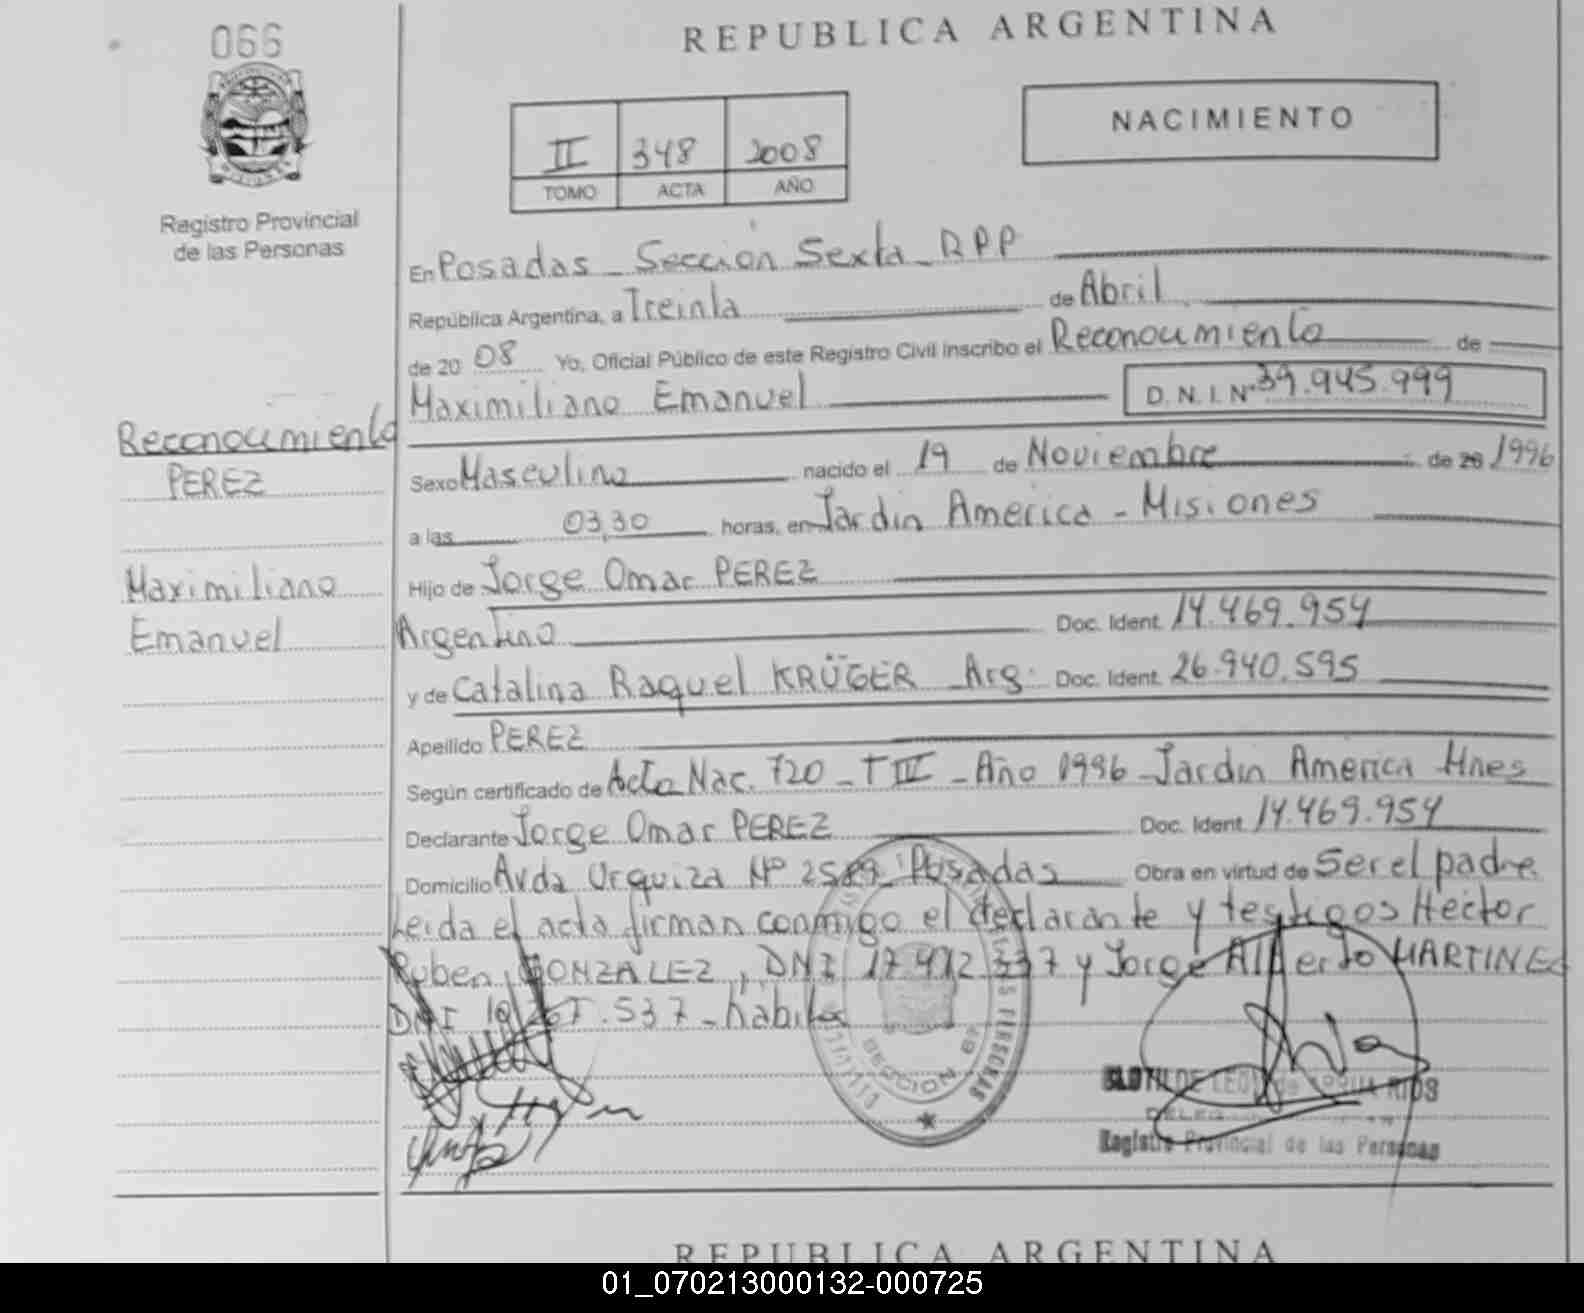 066
REPUBLICA ARGENTINA
II 348 2008
TOMO ACTA AÑO
NACIMIENTO
Registro Provincial
de las Personas
En Posadas - Sección Sexta - RPP
República Argentina, a Treinta de Abril
de 2008 Yo, Oficial Público de este Registro Civil inscribo el Reconocimiento de
Maximiliano Emanuel D.N.I. Nº 39.945.999
Reconocimiento
PEREZ
Maximiliano
Emanuel
Sexo Masculino nacido el 19 de Noviembre de 20 1996
a las 03,30 horas, en Jardin America - Misiones
Hijo de Jorge Omar PEREZ
Argentino Doc. Ident. 14.469.954
y de Catalina Raquel KRÜGER Arg. Doc. Ident. 26.940.595
Apellido PEREZ
Según certificado de Acta Nac. 720 - T III - Año 1996 - Jardin America Mnes
Declarante Jorge Omar PEREZ Doc. Ident. 14.469.954
Domicilio Avda Urquiza Nº Posadas Obra en virtud de Ser el padre
Leida el acta firman conmigo el declarante y testigos Hector
Ruben GONZALEZ, DNI y Jorge Alberto MARTINEZ
DNI .537 - habiles
SECCION 6ª
PERSONAS
CLOTILDE RIOS
Registro Provincial de las Personas
REPUBLICA ARGENTINA
01_070213000132-000725